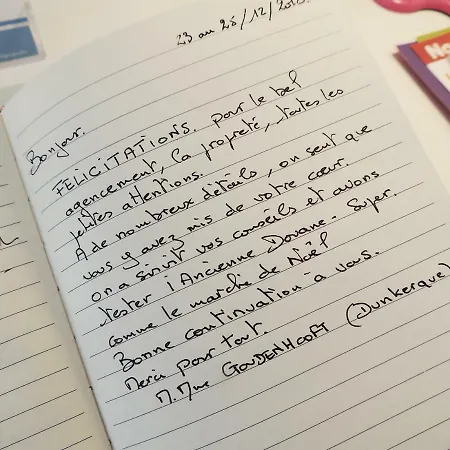 23 au 26/12/20
Bonjour.
FELICITATIONS. pour le bel
agencement, la propreté, toutes les
petites attentions.
A de nombreux détails, on sent que
vous y avez mis de votre coeur.
on a suivit vos conseils et avons
tester l'Ancienne Douane. Super.
comme le marché de Noël
Bonne continuation à vous.
Merci pour tout.
M. Mme GOUDENHOOFT (Dunkerque)